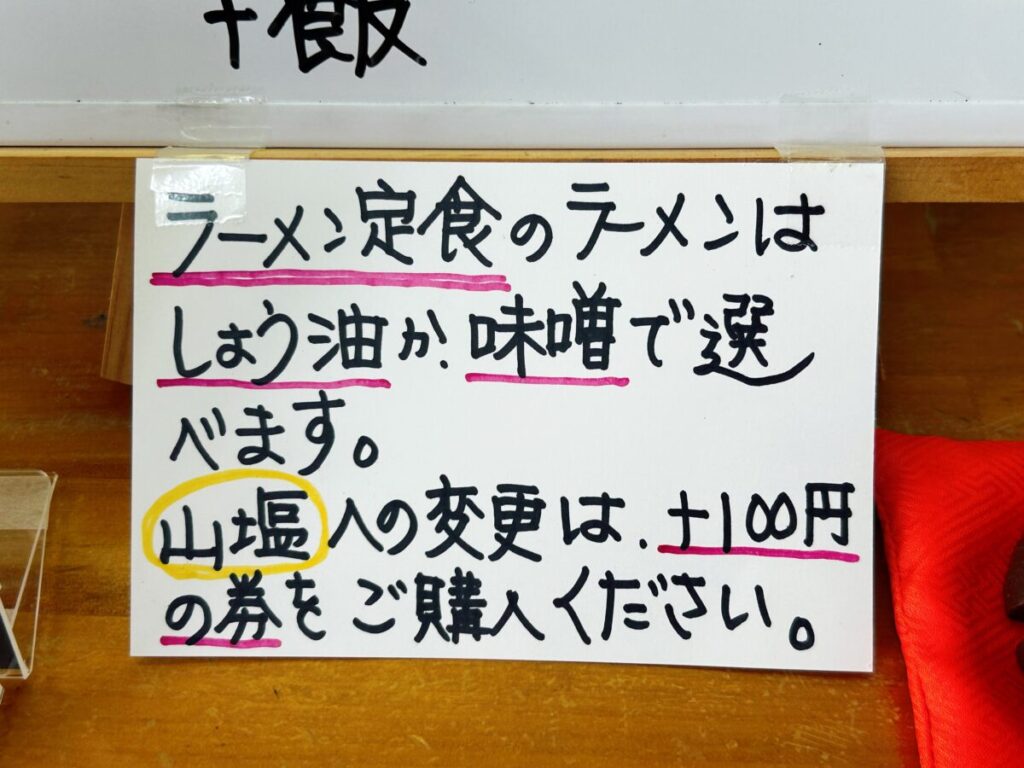 +飯
ラーメン定食のラーメンは
しょう油か、味噌で選
べます。
山塩への変更は、+100円
の券をご購入ください。